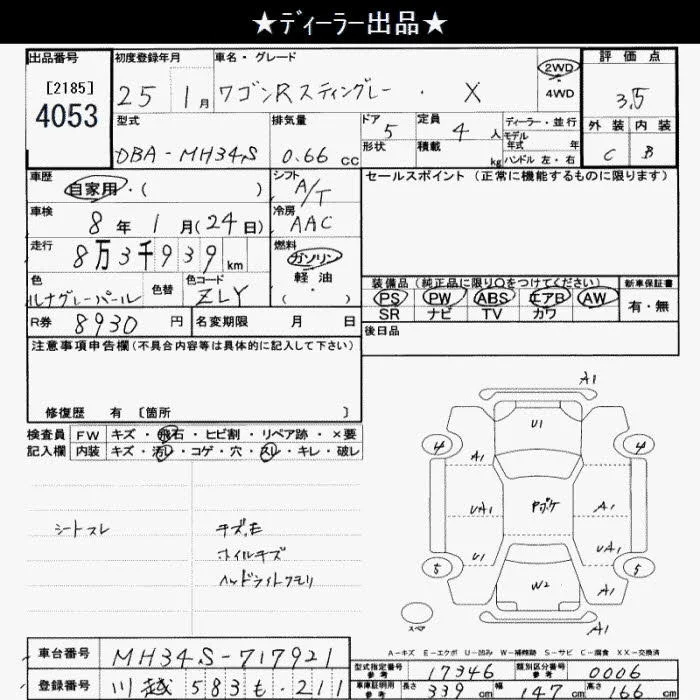 ★ディーラー出品★
出品番号
[2185]
4053
初度登録年月
25年 1月
車名・グレード
ワゴンRスティングレー ・ X
2WD
4WD
評価点
3.5
外装 内装
C B
型式
DBA-MH34S
排気量
0.66 cc
ドア 5
形状
定員 4 人
積載 kg
ディーラー・並行
モデル年式 年
ハンドル 左・右
車歴
自家用・( )
シフト
A/T
セールスポイント(正常に機能するものに限ります)
車検
8年 1月(24日)
冷房
AAC
走行
8万3千939km
燃料
ガソリン
軽油
( )
色
ルナグレーパール
色替
色コード
ZLY
装備品(純正品に限り○をつけてください)
新車保証書
PS PW ABS エアB AW
SR ナビ TV カワ
有・無
R券 8930円
名変期限 月 日
後日品
注意事項申告欄(不具合内容等は具体的に記入して下さい)
修復歴 有 〔箇所 〕
検査員記入欄
FW キズ・飛石・ヒビ割・リペア跡・×要
内装 キズ・汚レ・コゲ・穴・スレ・キレ・破レ
シートスレ
キズ,E
ホイルキズ
ヘッドライトクモリ
A1
U1
4
4
A1
A1
UA1
ヤネボケ
A1
U1
UA1
5
5
W2
A1
A1
スペア
A-キズ E-エクボ U-凹み W-補修跡 S-サビ C-腐食 XX-交換済
車台番号 MH34S-717921
登録番号 川越 583 も・211
型式指定番号 参考 17346
類別区分番号 参考 0006
車庫証明用 参考 長さ 339cm 幅 147cm 高さ 166cm